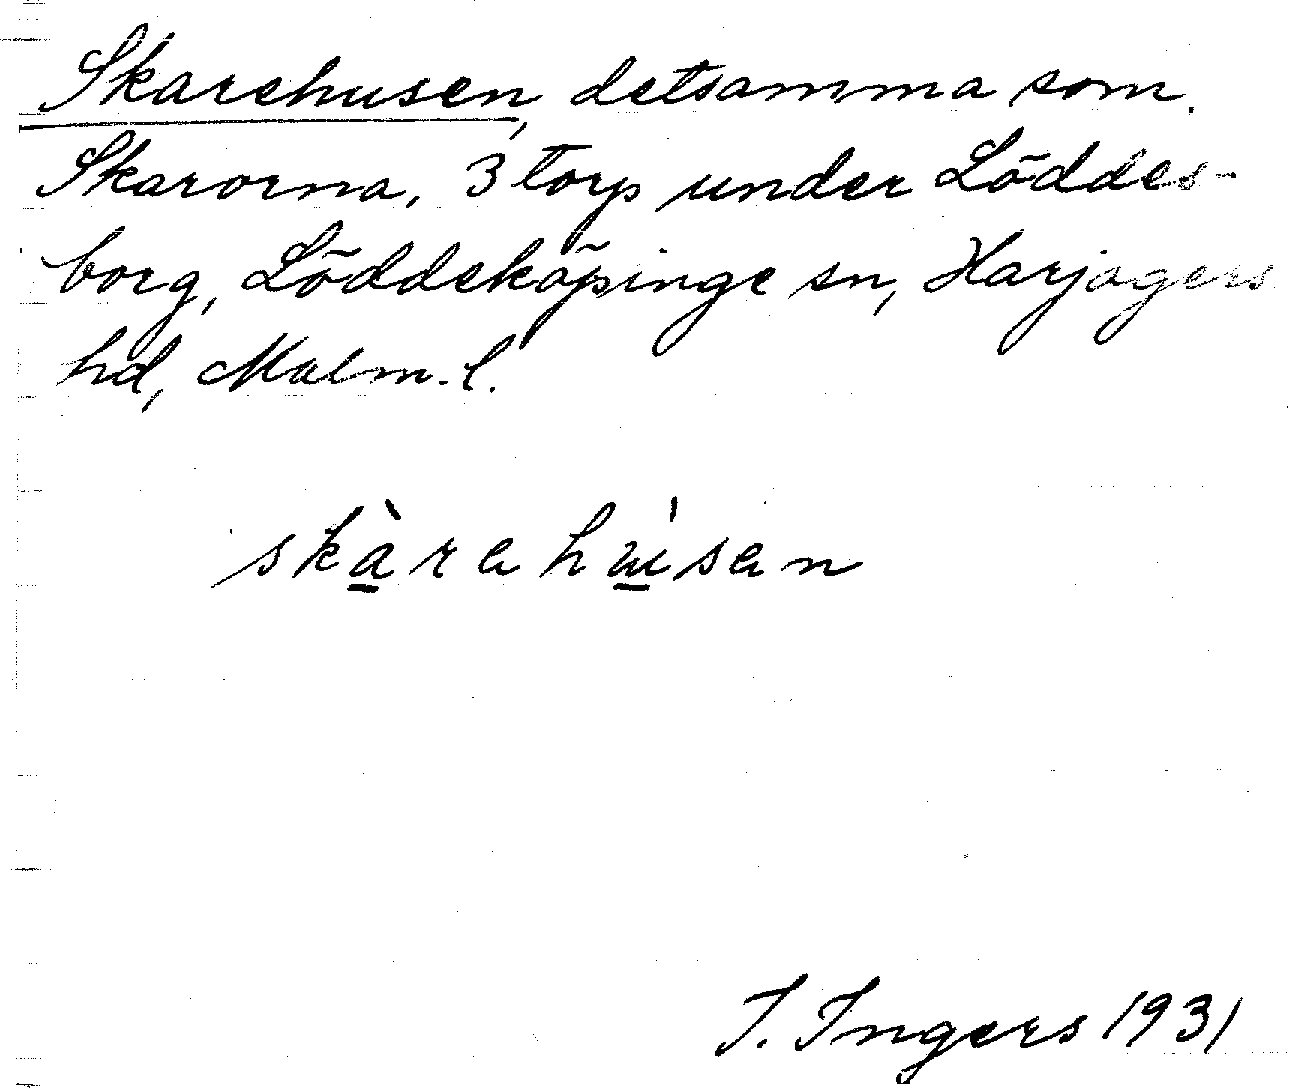 Skarehusen, detsamma som
Skarorna, 3 torp under Löddes-
borg, Löddeköpinge sn, Harjagers
hd, Malm. l.
skàrahúsan
I. Ingers 1931